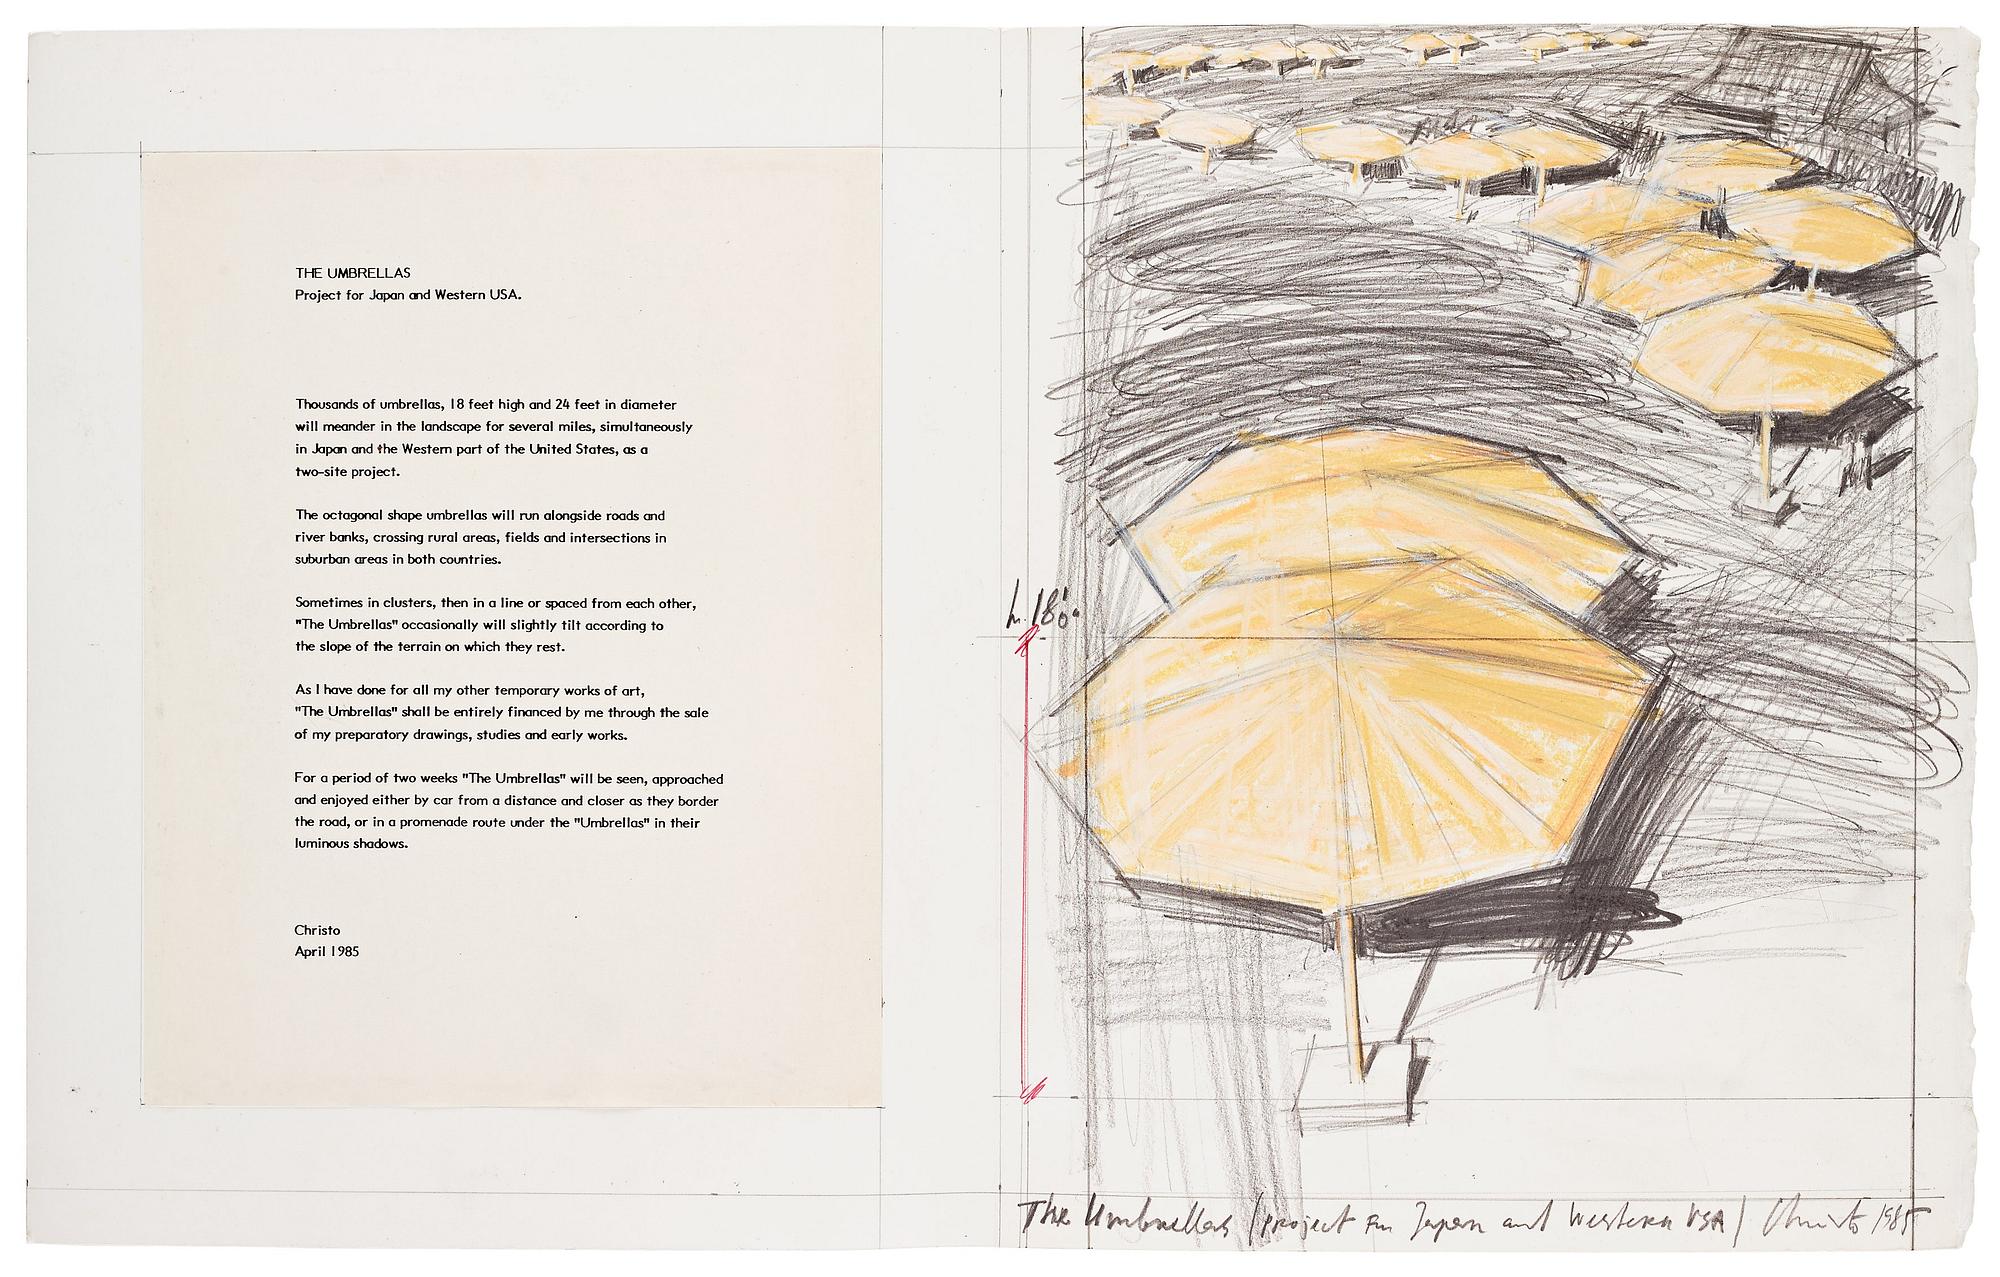 THE UMBRELLAS
Project for Japan and Western USA.
Thousands of umbrellas, 18 feet high and 24 feet in diameter
will meander in the landscape for several miles, simultaneously
in Japan and the Western part of the United States, as a
two-site project.
The octagonal shape umbrellas will run alongside roads and
river banks, crossing rural areas, fields and intersections in
suburban areas in both countries.
Sometimes in clusters, then in a line or spaced from each other,
"The Umbrellas" occasionally will slightly tilt according to
the slope of the terrain on which they rest.
As I have done for all my other temporary works of art,
"The Umbrellas" shall be entirely financed by me through the sale
of my preparatory drawings, studies and early works.
For a period of two weeks "The Umbrellas" will be seen, approached
and enjoyed either by car from a distance and closer as they border
the road, or in a promenade route under the "Umbrellas" in their
luminous shadows.
Christo
April 1985
h. 18'0"
The Umbrellas (project for Japan and Western USA) Christo 1985